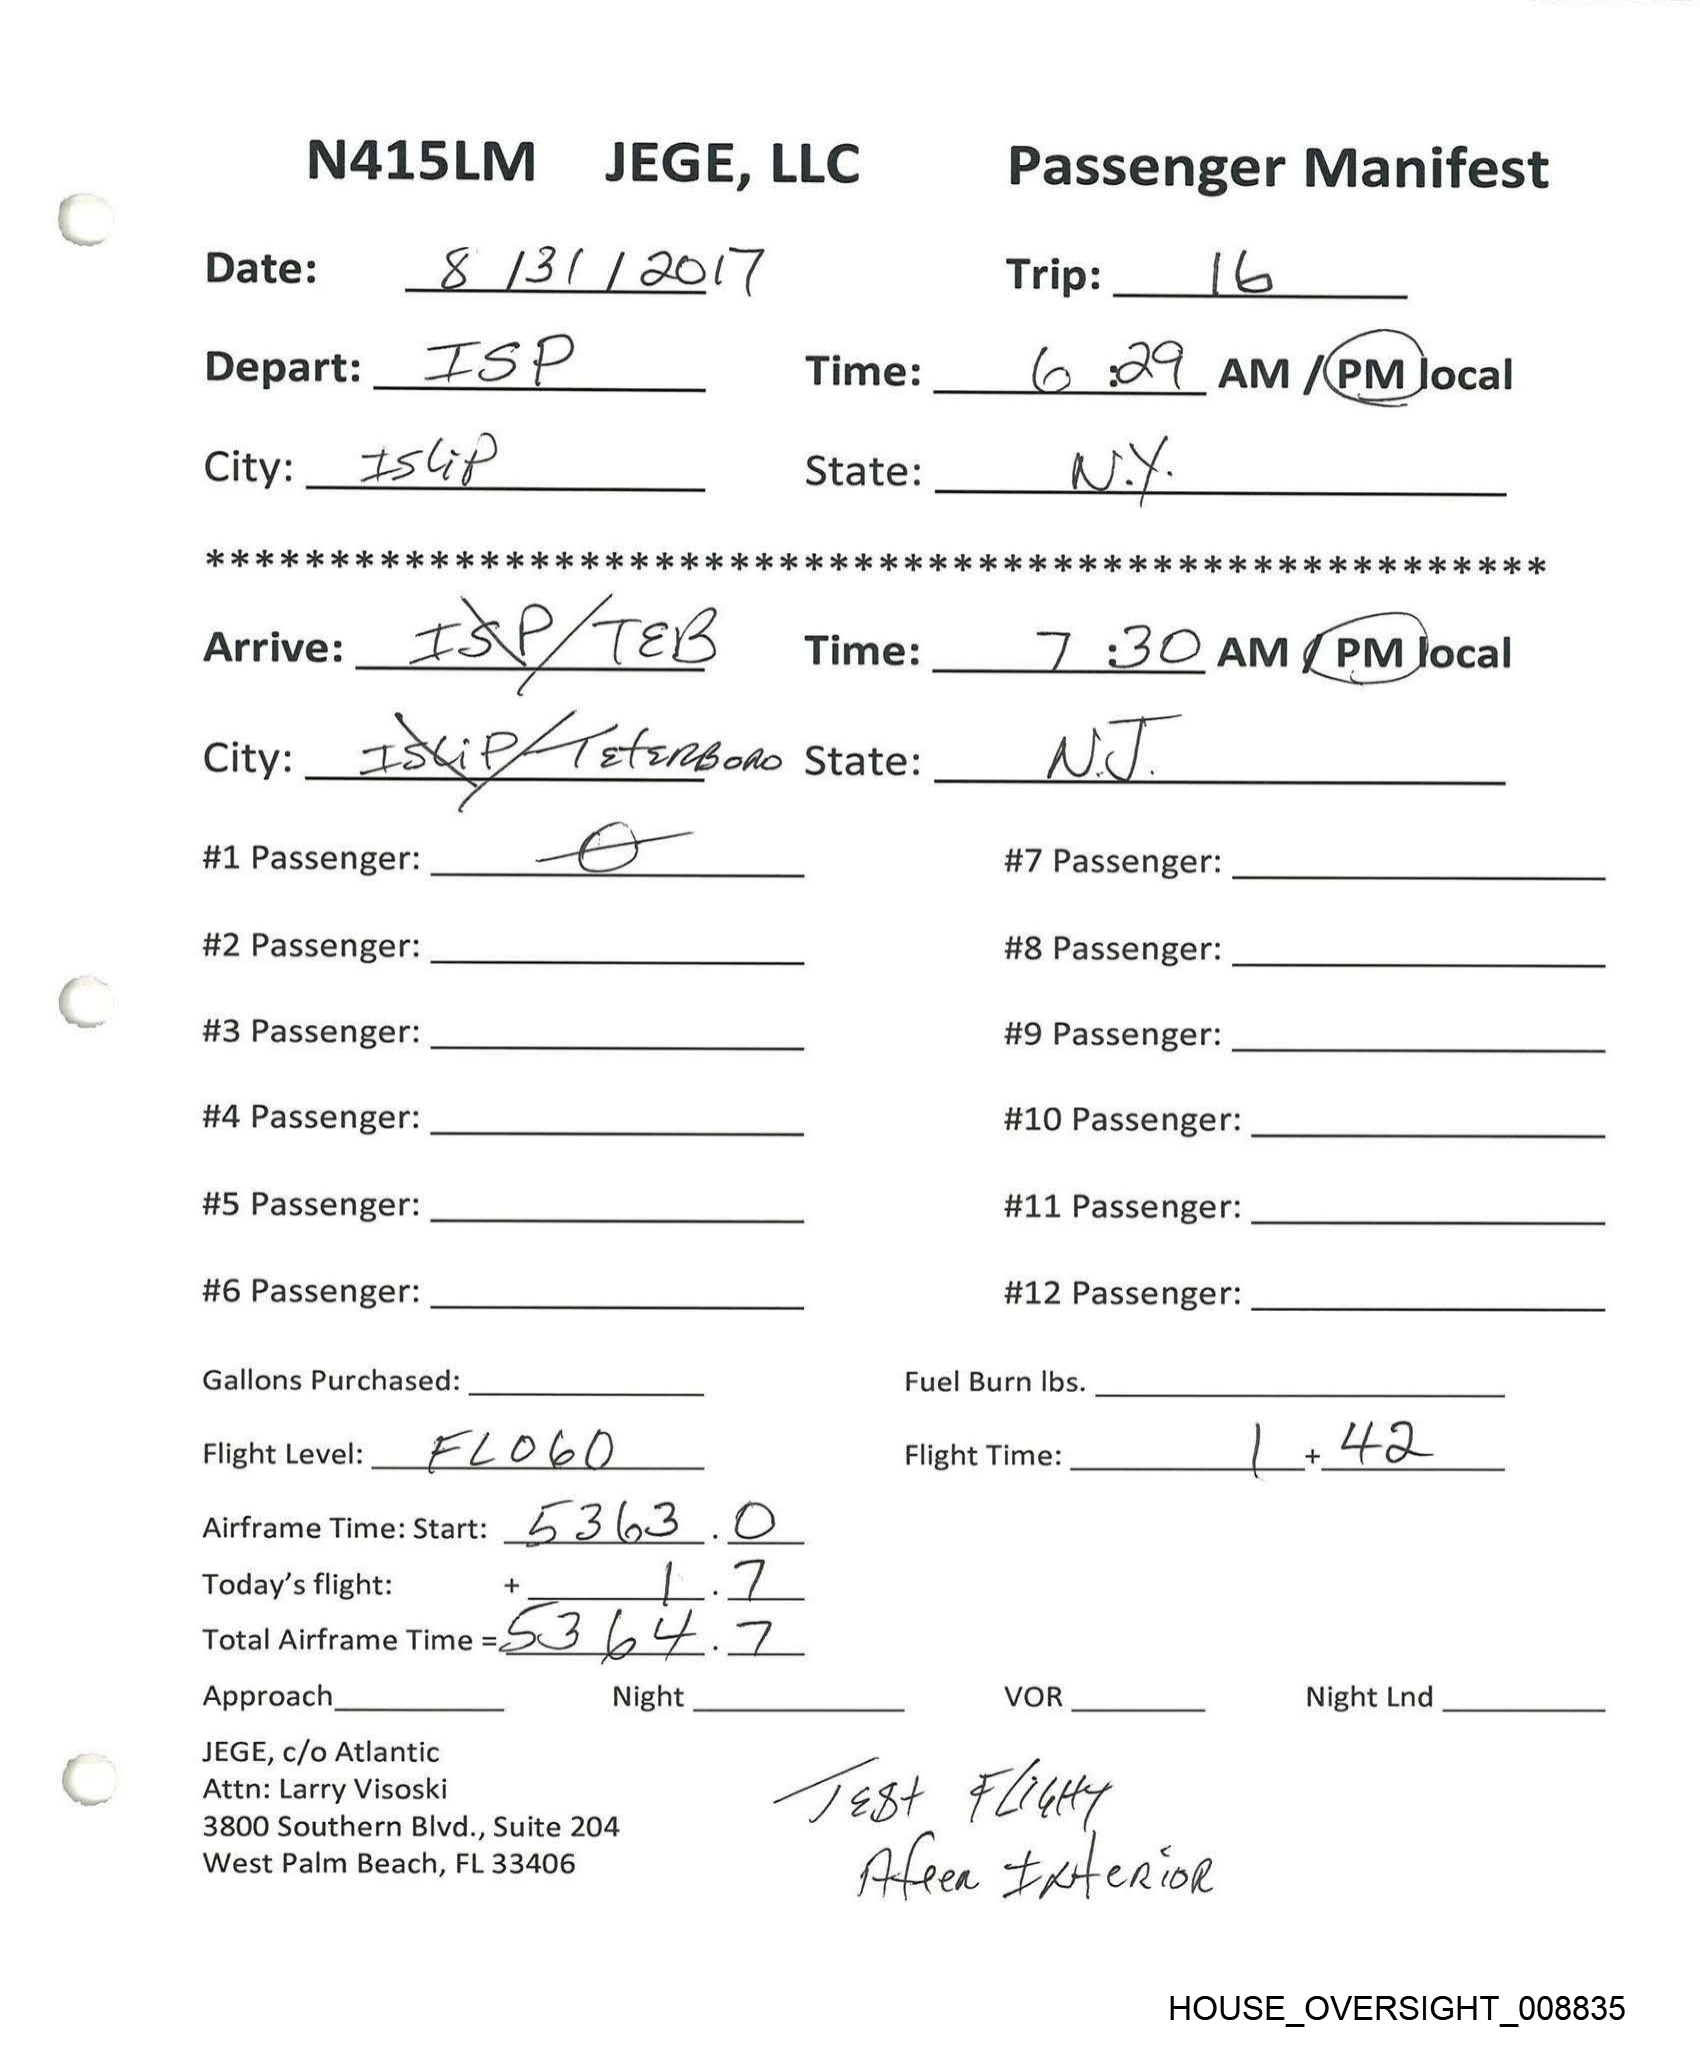 N415LM JEGE, LLC Passenger Manifest
Date: 8 / 31 / 2017 Trip: 16
Depart: ISP Time: 6 :29 AM / PM local
City: ISLiP State: N.Y.
******************************************************
Arrive: ISP/TEB Time: 7 :30 AM / PM local
City: ISLiP/TETERBORO State: N.J.
#1 Passenger: 0 #7 Passenger:
#2 Passenger: #8 Passenger:
#3 Passenger: #9 Passenger:
#4 Passenger: #10 Passenger:
#5 Passenger: #11 Passenger:
#6 Passenger: #12 Passenger:
Gallons Purchased: Fuel Burn lbs.
Flight Level: FL060 Flight Time: 1 + 42
Airframe Time: Start: 5363 . 0
Today's flight: + 1 . 7
Total Airframe Time = 5364 . 7
Approach Night VOR Night Lnd
JEGE, c/o Atlantic
Attn: Larry Visoski
3800 Southern Blvd., Suite 204
West Palm Beach, FL 33406
TEST FLIGHT
INTERIOR
HOUSE_OVERSIGHT_008835